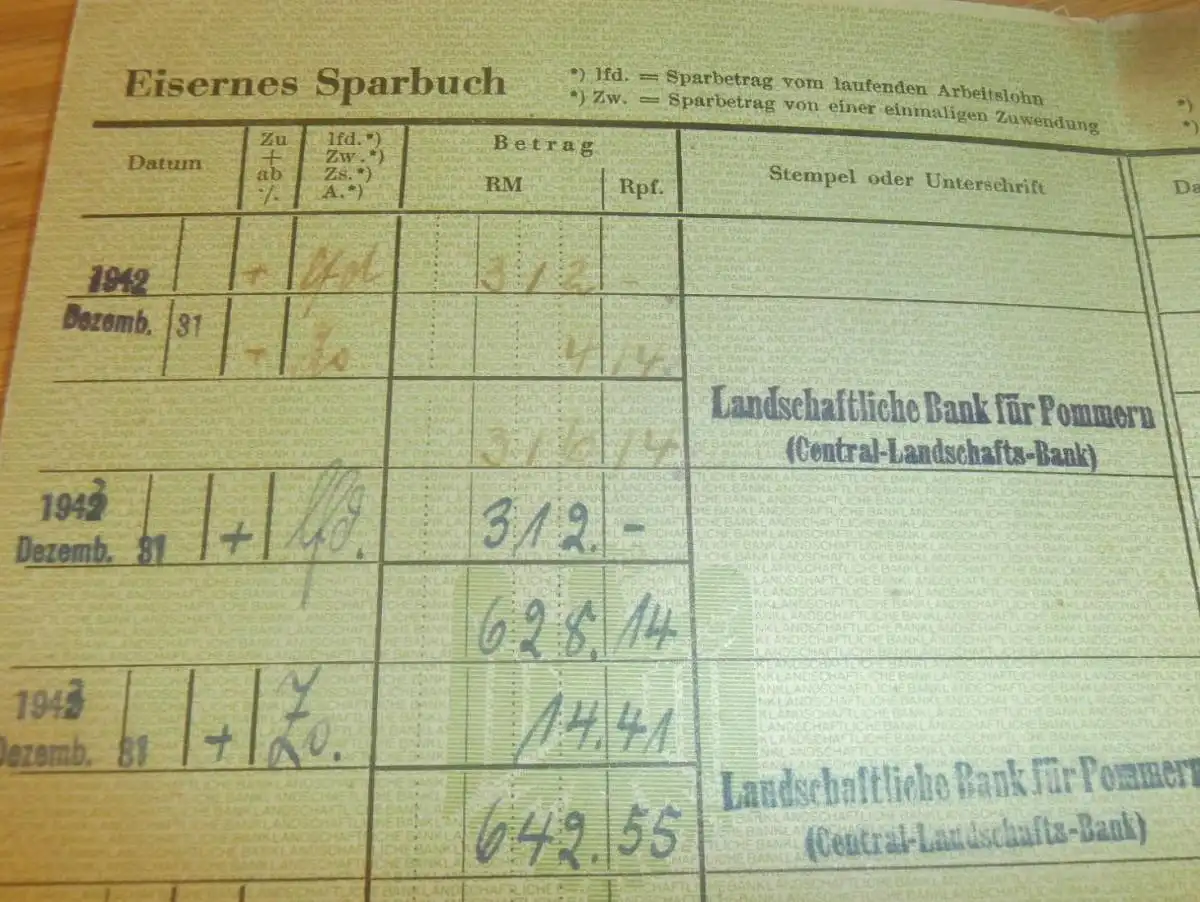 Eisernes Sparbuch
*) lfd. = Sparbetrag vom laufenden Arbeitslohn
*) Zw. = Sparbetrag von einer einmaligen Zuwendung
*)
*)
Datum
Zu
+
ab
·/.
lfd.*)
Zw.*)
Zs.*)
A.*)
Betrag
RM
Rpf.
Stempel oder Unterschrift
Da
1942 + lfd 312 -
Dezemb. 31
+ 4 14
316 14
Landschaftliche Bank für Pommern
(Central-Landschafts-Bank)
1943
Dezemb. 31 + lfd. 312. -
628. 14
1943
Dezemb. 31 + 14. 41
642. 55
Landschaftliche Bank für Pommern
(Central-Landschafts-Bank)